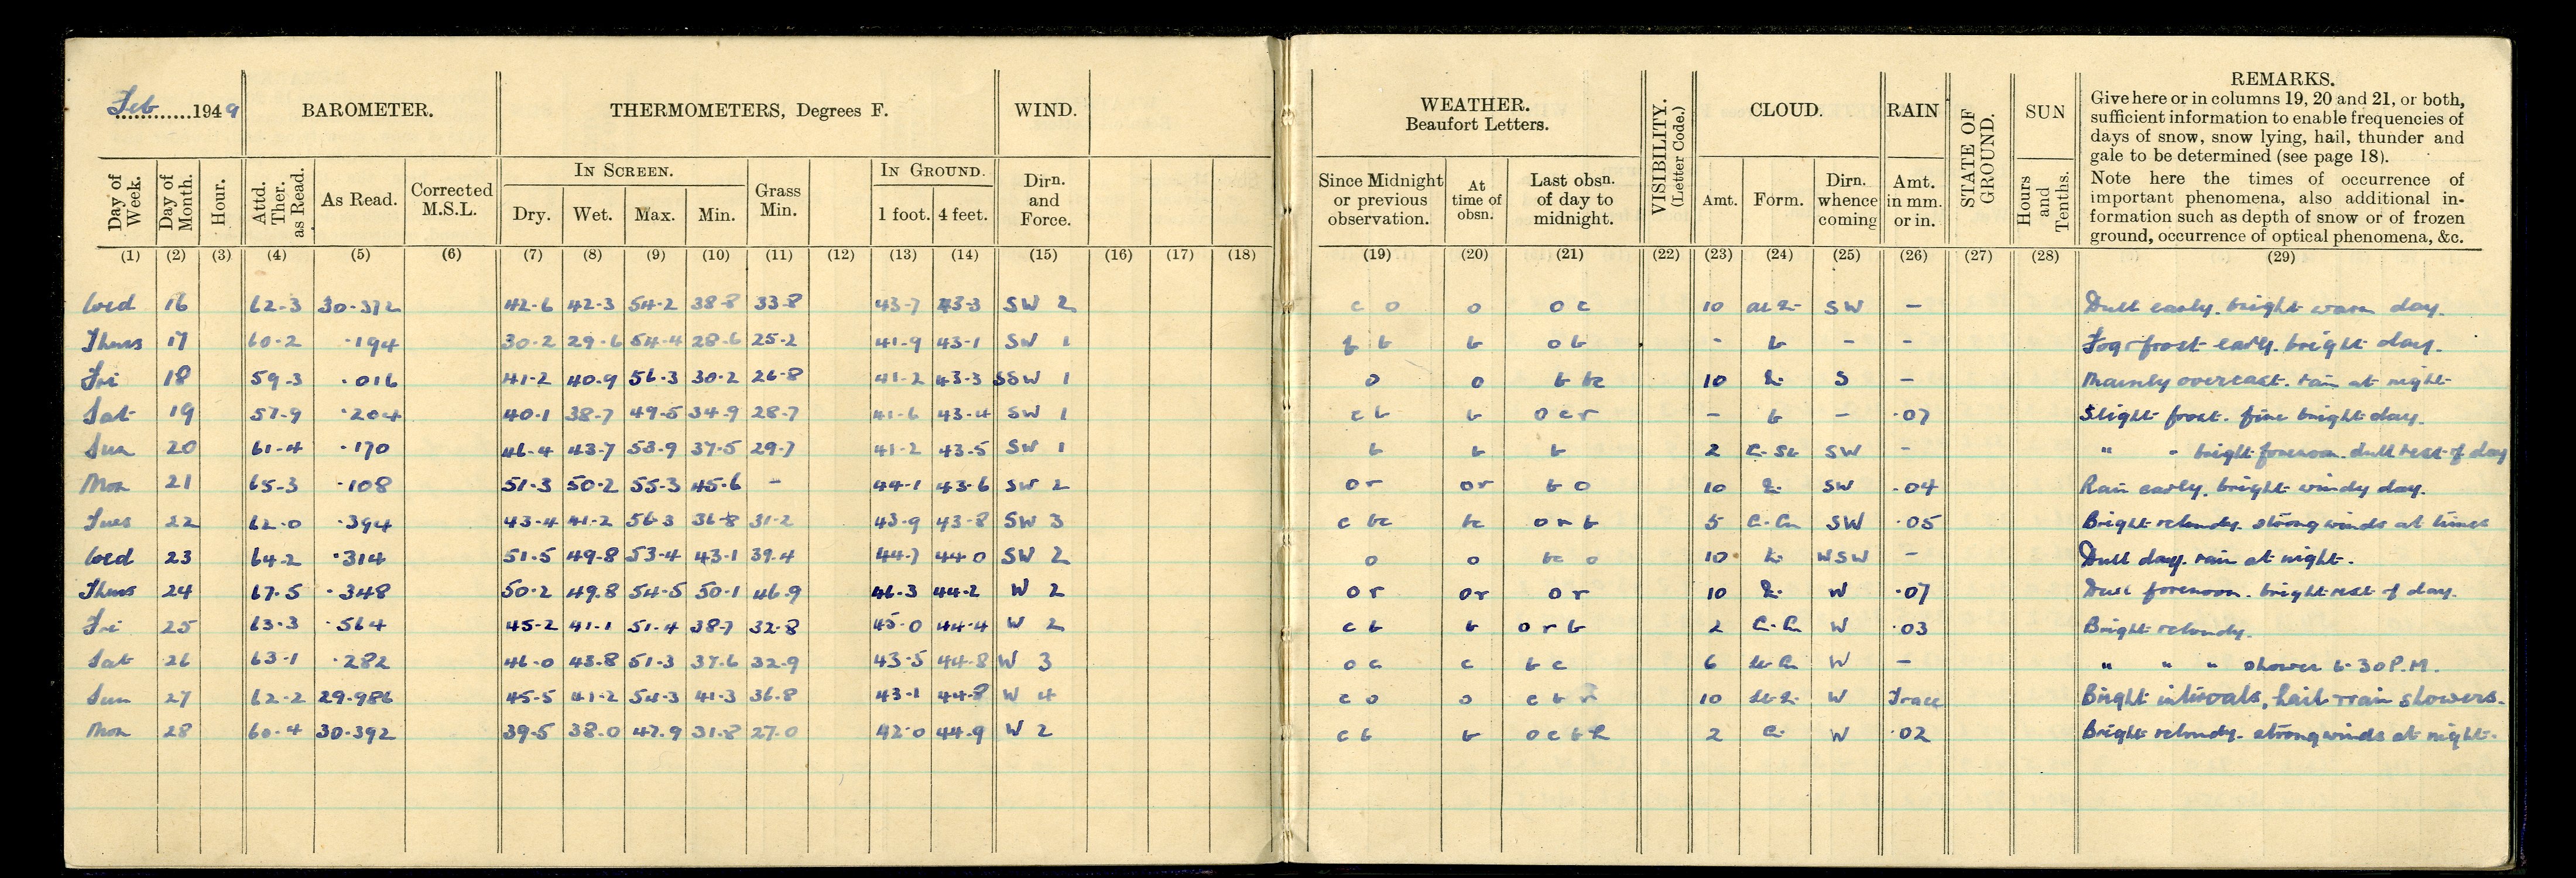 Feb 1949 BAROMETER. THERMOMETERS, Degrees F. WIND.
Day of Week. Day of Month. Hour. Attd. Ther. as Read. As Read. Corrected M.S.L. IN SCREEN. Dry. Wet. Max. Min. Grass Min. IN GROUND. 1 foot. 4 feet. Dirn. and Force.
(1) (2) (3) (4) (5) (6) (7) (8) (9) (10) (11) (12) (13) (14) (15) (16) (17) (18)
Wed 16 62.3 30.372 42.6 42.3 54.2 38.8 33.8 43.7 43.3 SW 2
Thurs 17 60.2 .194 30.2 29.6 54.4 28.6 25.2 41.9 43.1 SW 1
Fri 18 59.3 .016 41.2 40.9 56.3 30.2 26.8 41.2 43.3 SSW 1
Sat 19 57.9 .204 40.1 38.7 49.5 34.9 28.7 41.6 43.4 SW 1
Sun 20 61.4 .170 46.4 43.7 53.9 37.5 29.7 41.2 43.5 SW 1
Mon 21 65.3 .108 51.3 50.2 55.3 45.6 - 44.1 43.6 SW 2
Tues 22 62.0 .394 43.4 41.2 56.3 36.8 31.2 43.9 43.8 SW 3
Wed 23 64.2 .314 51.5 49.8 53.4 43.1 39.4 44.7 44.0 SW 2
Thurs 24 67.5 .348 50.2 49.8 54.5 50.1 46.9 46.3 44.2 W 2
Fri 25 63.3 .564 45.2 41.1 51.4 38.7 32.8 45.0 44.4 W 2
Sat 26 63.1 .282 46.0 43.8 51.3 37.6 32.9 43.5 44.8 W 3
Sun 27 62.2 29.986 45.5 41.2 54.3 41.3 36.8 43.1 44.8 W 4
Mon 28 60.4 30.392 39.5 38.0 47.9 31.8 27.0 42.0 44.9 W 2
WEATHER. Beaufort Letters. VISIBILITY. (Letter Code.) CLOUD. RAIN STATE OF GROUND. SUN REMARKS.
Since Midnight or previous observation. At time of obsn. Last obsn. of day to midnight. Amt. Form. Dirn. whence coming Amt. in mm. or in. Hours and Tenths.
Give here or in columns 19, 20 and 21, or both,
sufficient information to enable frequencies of
days of snow, snow lying, hail, thunder and
gale to be determined (see page 18).
Note here the times of occurrence of
important phenomena, also additional in-
formation such as depth of snow or of frozen
ground, occurrence of optical phenomena, &c.
(19) (20) (21) (22) (23) (24) (25) (26) (27) (28) (29)
c o o o c 10 SW - Dull early. bright warm day.
b b o b - b - - Fog + frost early. bright day.
o o b bc 10 S - Mainly overcast. rain at night
c b b o c r - b - .07 Slight frost. fine bright day.
b b b 2 SW - " " bright forenoon. dull rest of day
o r o r b o 10 SW .04 Rain early. bright windy day.
c bc bc o r b 5 SW .05 Bright + cloudy. strong winds at times
o o bc o 10 WSW - Dull day. rain at night.
o r o r o r 10 W .07 Dull forenoon. bright rest of day.
c b b o r b 2 W .03 Bright + cloudy.
o c c b c 6 W - " " " shower 6.30 P.M.
c o o c b 10 W Trace Bright intervals, hail + rain showers.
c b b o c b 2 W .02 Bright + cloudy. strong winds at night.